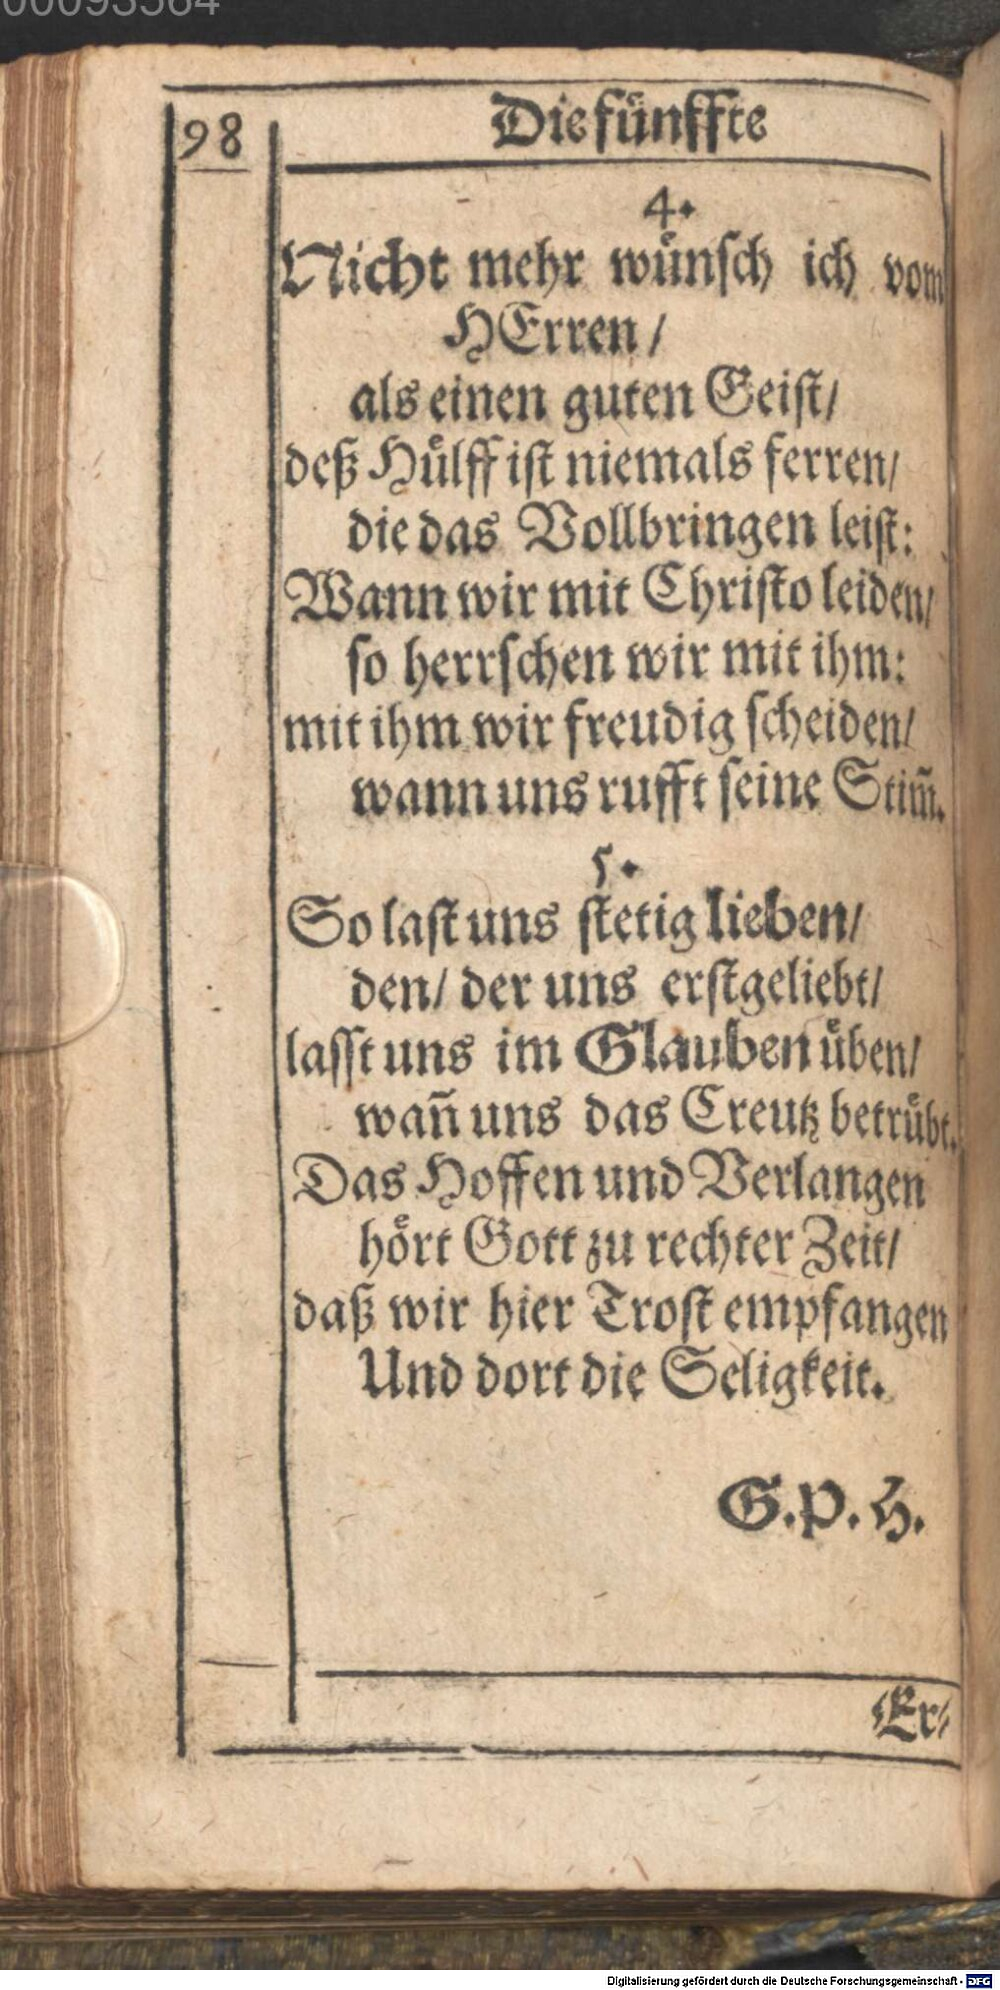 00093564
98
Die fünffte
4.
Nicht mehr wünsch ich vom
HErren /
als einen guten Geist /
deß Hülff ist niemals ferren /
die das Vollbringen leist:
Wann wir mit Christo leiden /
so herrschen wir mit ihm:
mit ihm wir freudig scheiden /
wann uns rufft seine Stim̃.
5.
So last uns stetig lieben /
den / der uns erstgeliebt /
lasst uns im Glauben üben /
wañ uns das Creutz betrübt.
Das Hoffen und Verlangen
hört Gott zu rechter Zeit /
daß wir hier Trost empfangen
Und dort die Seligkeit.
G. P. H.
Er-
Digitalisierung gefördert durch die Deutsche Forschungsgemeinschaft - DFG